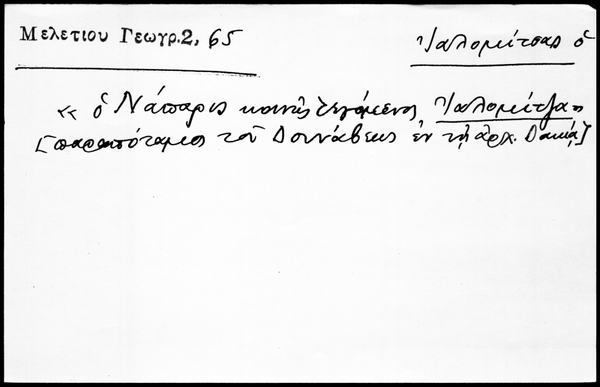 Μελετίου Γεωγρ. 2, 65
Ἰαλομίτσας ὁ
« ὁ Νάπαρις κοινῶς λεγόμενος Ἰαλομίτζα»
[παραπόταμος τοῦ Δουνάβεως ἐν τῇ ἀρχ. Δακίᾳ]